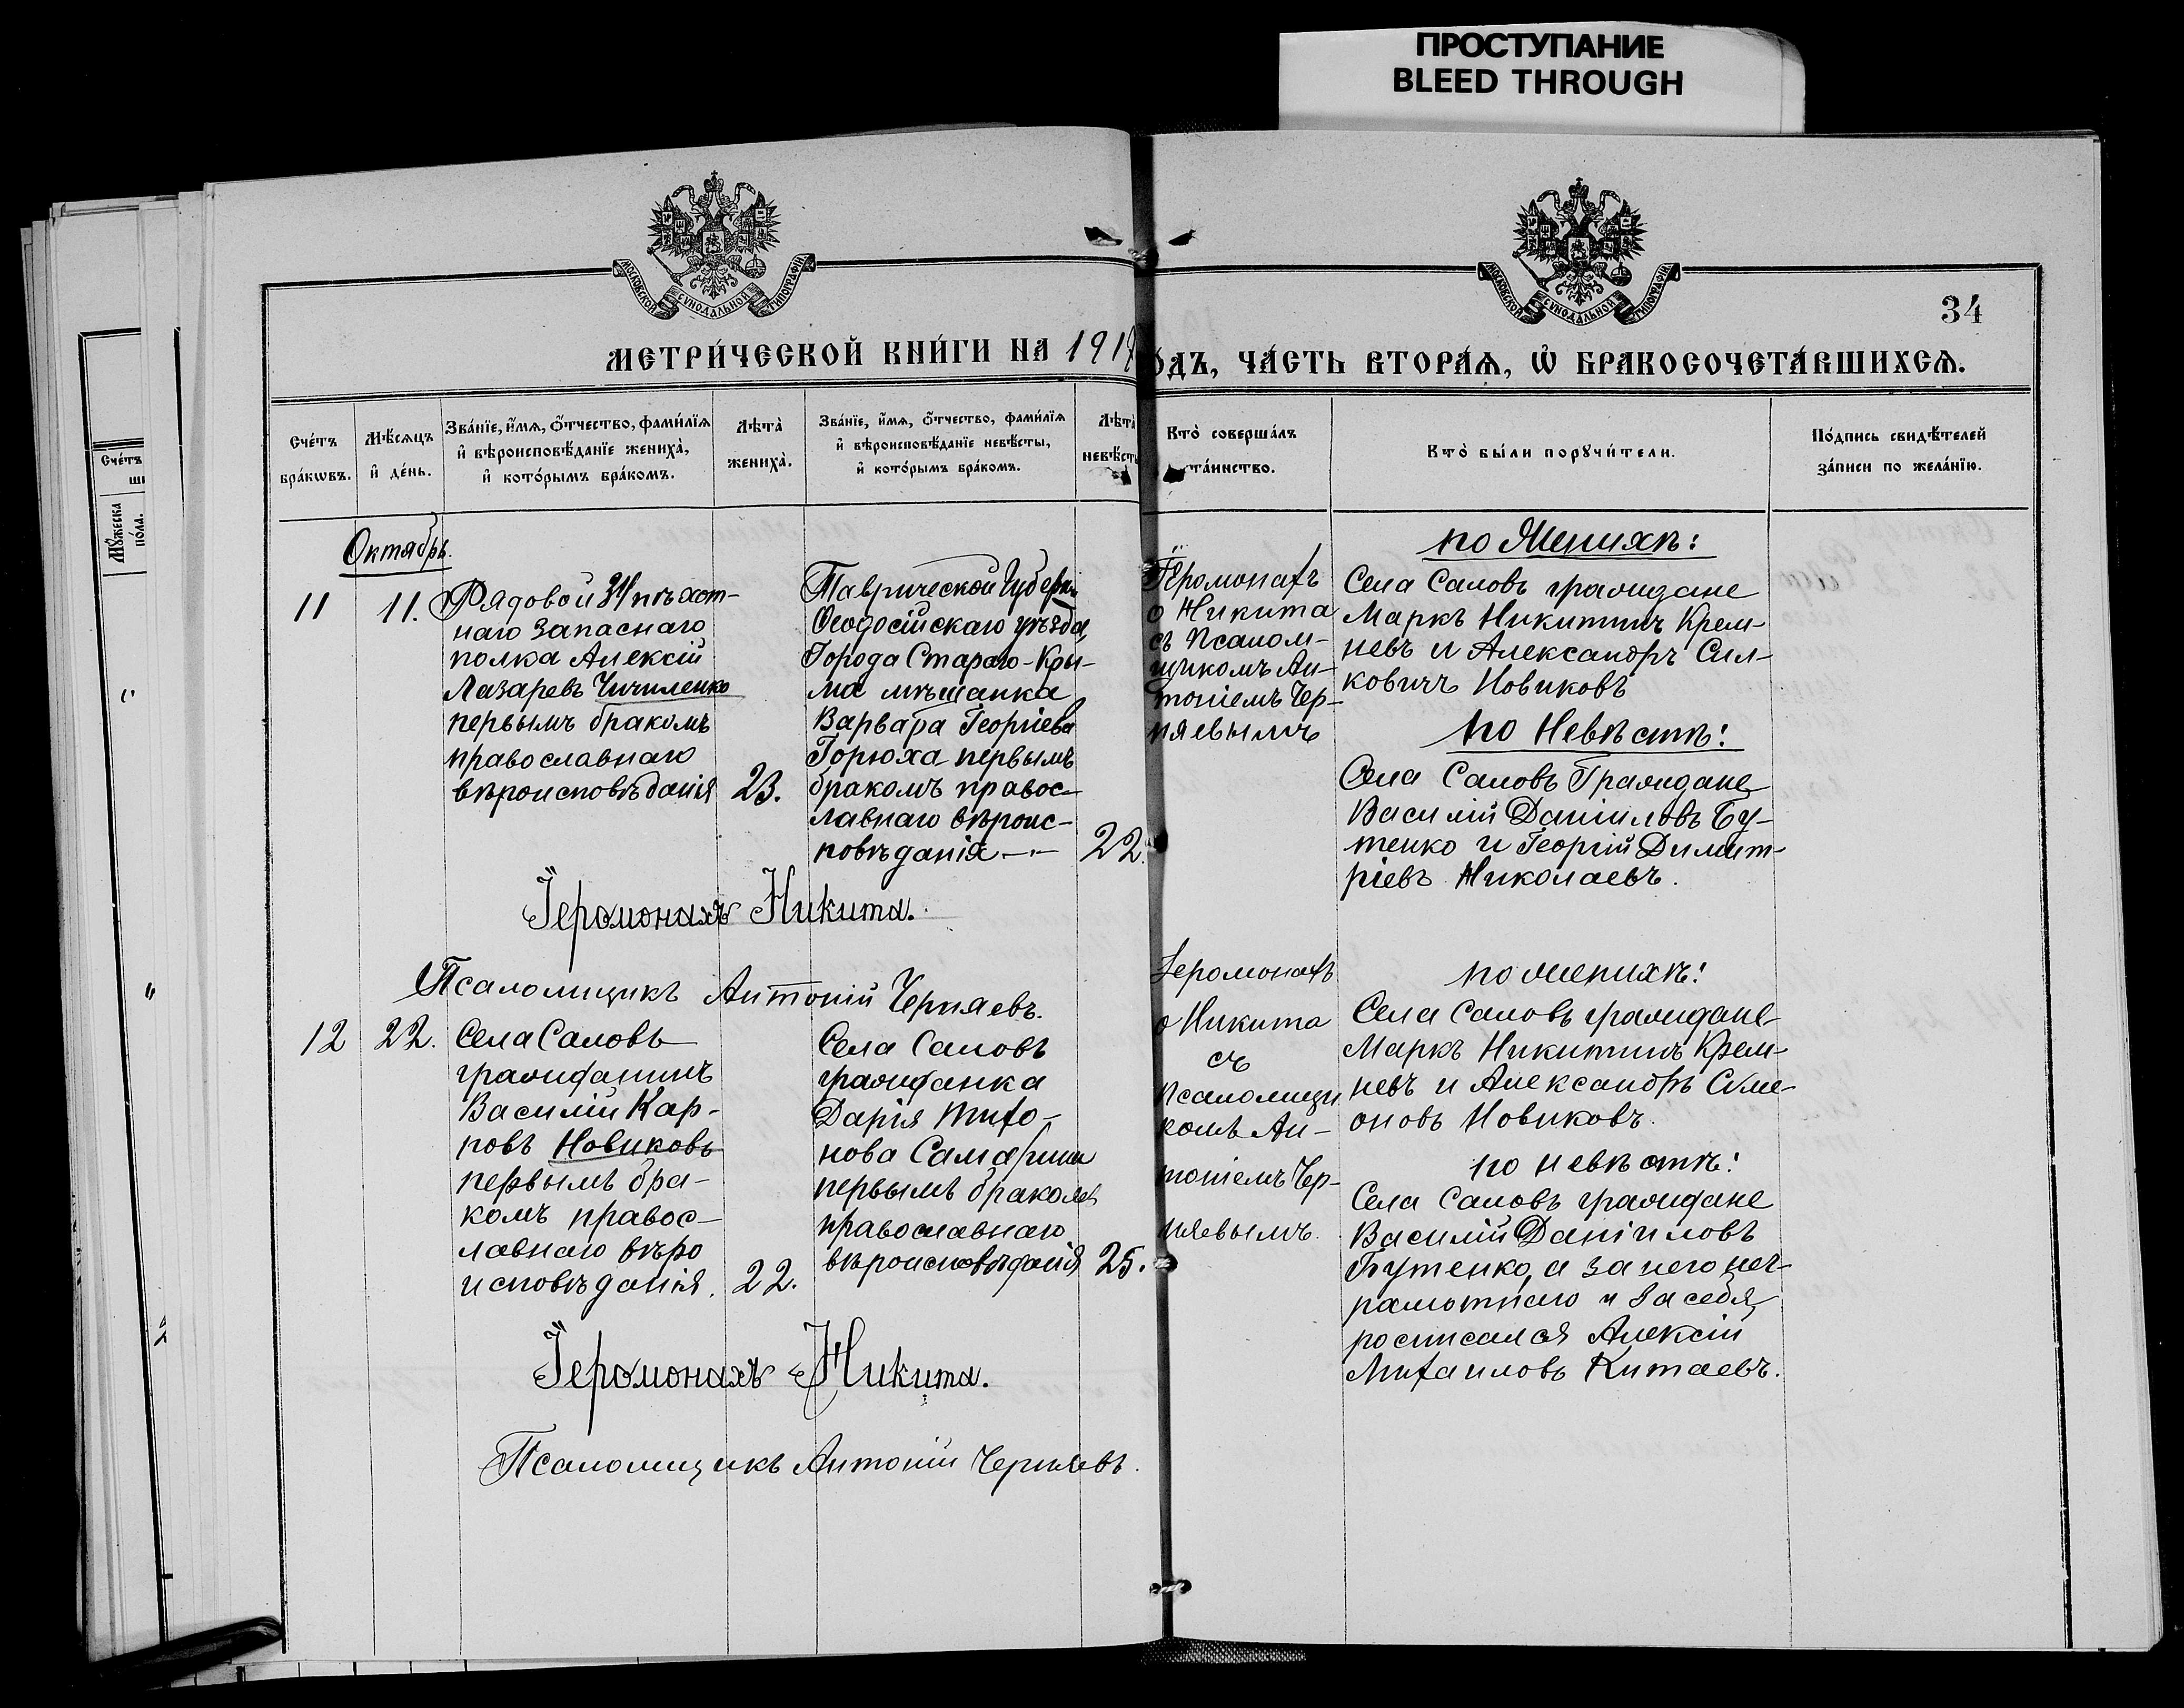 ПРОСТУПАНИЕ
BLEED THROUGH
МОСКОВСКОЙ СѴНОДАЛЬНОЙ ТИПОГРАФІИ
МОСКОВСКОЙ СѴНОДАЛЬНОЙ ТИПОГРАФІИ
34
МЕТРИ́ЧЕСКОЙ КНИ́ГИ НА 1917
ОДЪ, ЧА́СТЬ ВТОРА́Ѧ, Ѡ҆ БРАКОСОЧЕТА́ВШИХСѦ.
Сче́тъ
бра́кѡвъ.
Мѣ́сѧцъ
и҆ де́нь.
Зва́нїе, и҆́мѧ, ѻ҆́тчество, фами́лїѧ
и҆ вѣроисповѣ́данїе жениха̀,
и҆ кото́рымъ бра́комъ.
Лѣ́та̀
жениха̀.
Зва́нїе, и҆́мѧ, ѻ҆́тчество, фами́лїѧ
и҆ вѣроисповѣ́данїе невѣ́сты,
и҆ кото́рымъ бра́комъ.
Лѣ́та̀
невѣ́сты
Кто̀ соверша́лъ
та́инство.
Кто̀ бы́ли порꙋчи́тели.
По́дпись свидѣ́телей
за́писи по жела́нїю.
Счетъ
Мꙋжеска
по́ла.
Октябрь.
11
11.
Рядовой 34 пѣхот-
наго запаснаго
полка Алексій
Лазаревъ Чичиленко
первымъ бракомъ
православнаго
вѣроисповѣданія
23.
Таврической Губерніи
Ѳеодосійскаго уѣзда,
Города Стараго-Кры-
ма мѣщанка
Варвара Георгіева
Горюха первымъ
бракомъ правос-
лавнаго вѣроис-
повѣданія
22.
Іеромонахъ
о Никита
съ Псалом-
щикомъ Ан-
тоніемъ Чер-
няевымъ
по Женихѣ:
Села Саловъ граждане
Маркъ Никитинъ Крем-
невъ и Александръ Сил-
ковичъ Новиковъ
по Невѣстѣ:
Села Саловъ Граждане
Василій Даніиловъ Бу-
тенко и Георгій Димит-
ріевъ Николаевъ.
Іеромонахъ Никита.
Псаломщикъ Антоній Черняевъ.
12
22.
Села Саловъ
гражданинъ
Василій Кар-
повъ Новиковъ
первымъ бра-
комъ правос-
лавнаго вѣро
исповѣданія.
22.
Села Саловъ
гражданка
Дарія Тихо-
нова Самарина
первымъ бракомъ
православнаго
вѣроисповѣданія
25.
Іеромонахъ
о Никита
съ
Псаломщи
комъ Ан-
тоніемъ Чер-
няевымъ.
по женихѣ:
Села Саловъ граждане
Маркъ Никитинъ Крем-
невъ и Александръ Симе-
оновъ Новиковъ.
по невѣстѣ:
Села Саловъ граждане
Василій Даніиловъ
Бутенко, а за него нег-
рамотнаго и за себя
росписался Алексій
Михаиловъ Китаевъ.
Іеромонахъ Никита.
Псаломщикъ Антоній Черняевъ.